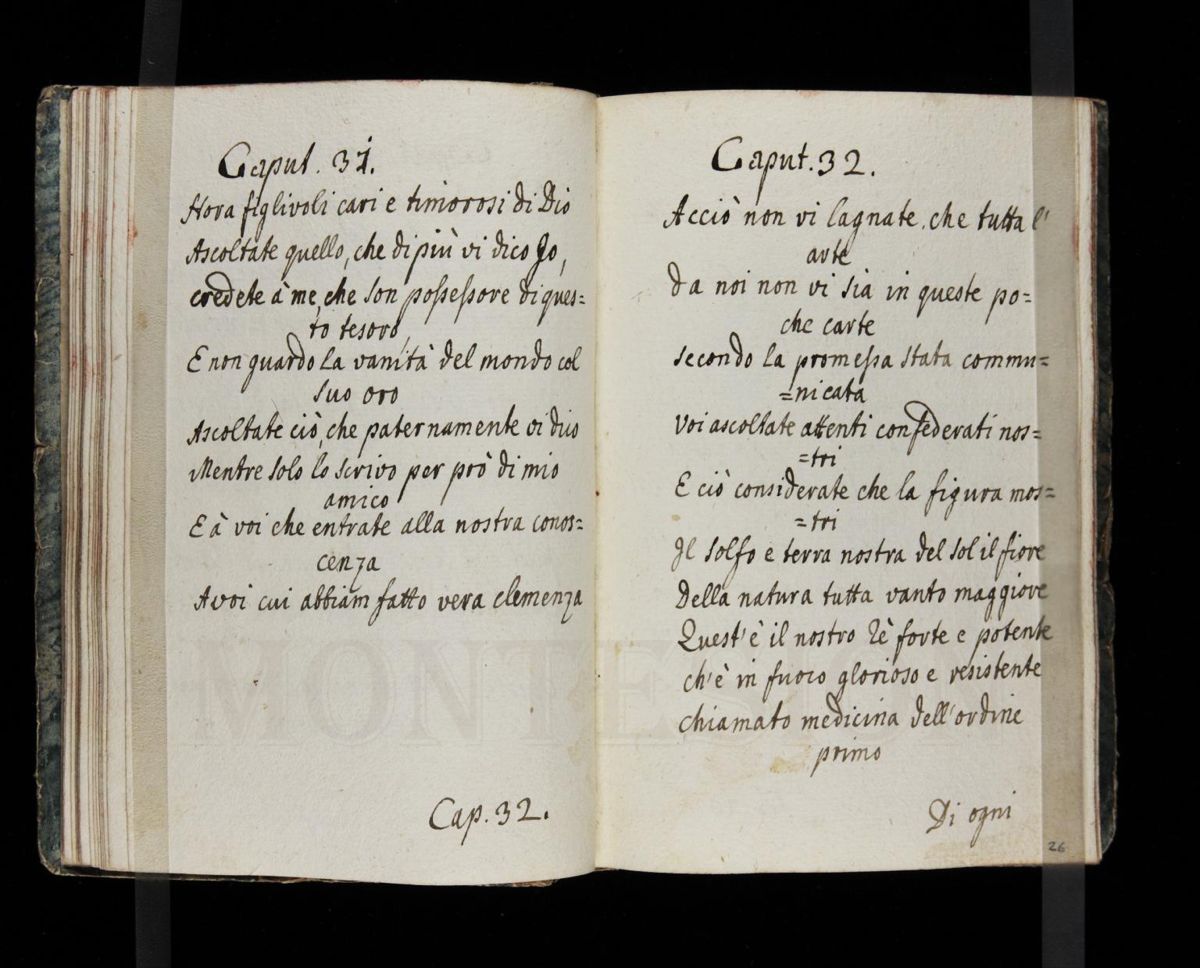 Caput. 31.
Hora figlivoli cari e timorosi di Dio
Ascoltate quello, che di più vi dico Jo,
credete à me, che son possessore di ques=
to tesoro,
E non guardo la vanità del mondo col
suo oro
Ascoltate ciò, che paternamente vi dico
Mentre solo lo scrivo per prò di mio
amico
E à voi che entrate alla nostra conos=
cenza
A voi cui abbiam fatto vera clemenza
Cap. 32.
Caput. 32.
Acciò non vi lagnate, che tutta l'
arte
Da noi non vi sia in queste po=
che carte
secondo la promessa stata commu=
=nicata
Voi ascoltate attenti confederati nos=
=tri
E ciò considerate che la figura mos=
=tri
Il solfo e terra nostra del sol il fiore
Della natura tutta vanto maggiore
Quest'è il nostro Rè forte e potente
ch'è in fuoco glorioso e resistente
chiamato medicina dell'ordine
primo
Di ogni
26
MONTE